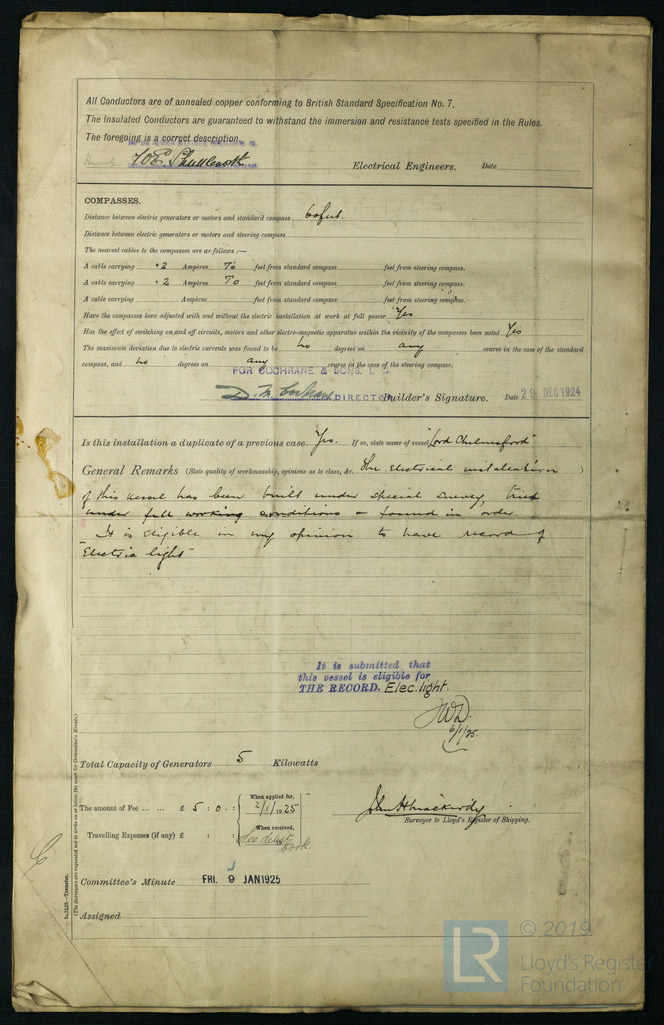 All Conductors are of annealed copper conforming to British Standard Specification No. 7.
The Insulated Conductors are guaranteed to withstand the immersion and resistance tests specified in the Rules.
The foregoing is a correct description.
Electrical Engineers. Date
COMPASSES.
Distance between electric generators or motors and standard compass 60 feet.
Distance between electric generators or motors and steering compass
The nearest cables to the compasses are as follows:—
A cable carrying ·2 Ampères To feet from standard compass feet from steering compass.
A cable carrying ·2 Ampères To feet from standard compass feet from steering compass.
A cable carrying Ampères feet from standard compass feet from steering compass.
Have the compasses been adjusted with and without the electric installation at work at full power Yes
Has the effect of switching on and off circuits, motors and other electro-magnetic apparatus within the vicinity of the compasses been noted Yes
The maximum deviation due to electric currents was found to be no degrees on any course in the case of the standard
compass, and no degrees on any course in the case of the steering compass.
FOR COCHRANE & SONS. L D.
D. M. Cochrane DIRECTOR Builder's Signature. Date 29 DEC 1924
Is this installation a duplicate of a previous case Yes. If so, state name of vessel "Lord Chelmsford"
General Remarks (State quality of workmanship, opinions as to class, &c. The Electrical installation )
of this vessel has been built under special survey, tried
under full working conditions & found in order
It is eligible in my opinion to have record of
Electric light
It is submitted that
this vessel is eligible for
THE RECORD. Elec. light.
6/1/25.
Total Capacity of Generators 5 Kilowatts
The amount of Fee ... ... £ 5 : 0 . : When applied for, 2/1/1925
Travelling Expenses (if any) £ : : When received, See
book.
Surveyor to Lloyd's Register of Shipping.
Committee's Minute FRI. 9 JAN 1925
Assigned
(The Surveyors are requested not to write on or below the space for Committee's Minute.)
Transfer.
LR
© 2019
Lloyd's Register
Foundation